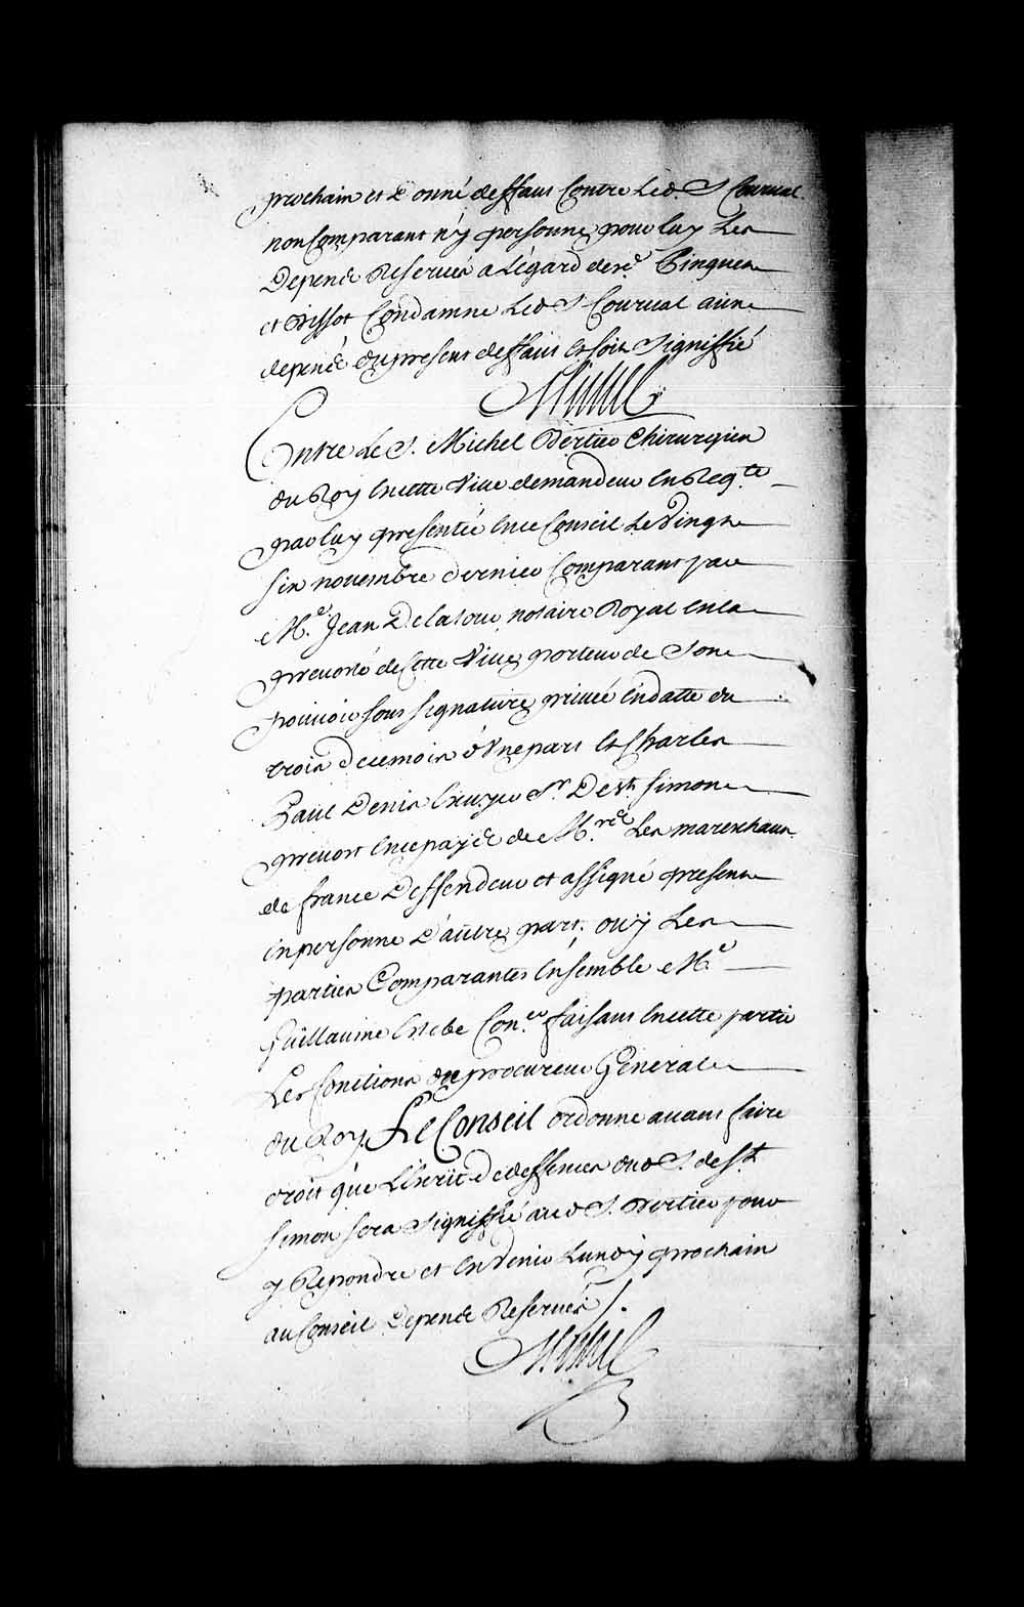 prochain et donné deffaut Contre Led. S. Courval
non Comparant n'y personne pour luy Les
Depens Reservés a L'égard desd.
et Brissot Condamne Led S. Courval aux
depens du present deffaut Et soit Signiffié
Entre Le S. Michel Bertier Chirurgien
du Roy En cette Ville demandeur En Reqte
par luy presentée En ce Conseil Le Vingt
six novembre dernier Comparant par
Me. Jean De latour notaire Royal En la
prevosté de Cette Ville porteur de Son
pouvoir sous signature privée En datte du
trois de ce mois d'Une part Et Charles
Paul Denis Ecuyer Sr. De St. Simon
prevost En ce pays de Mrs. Les mareschaux
de france Deffendeur et assigné present
en personne D'autre part; ouy Les
parties Comparantes Ensemble Me.
Guillaume Estebe Coner. faisant En cette partie
Les fonctions du procureur General
du Roy, Le Conseil ordonne avant faire
droit que L'Ecrit de deffences dud S. de St.
Simon sera Signiffié aud S. Bertier pour
y Repondre et En Venir Lundy prochain
au Conseil Depens Reservés /.